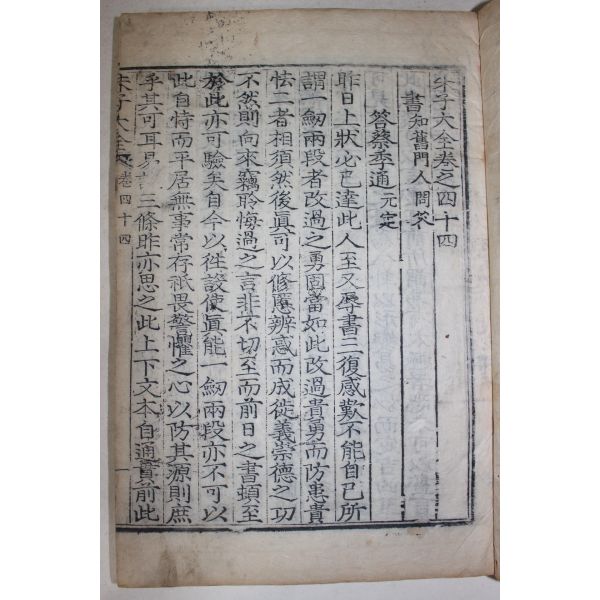 朱子大全卷之四十四
書知舊門人問荅
荅蔡季通元定
昨日上狀必已達此人至又辱書三復感歎不能自已所
謂一劒兩段者改過之勇固當如此改過貴勇而防患貴
怯二者相須然後眞可以修慝辨惑而成徙義崇德之功
不然則向來竊聆悔過之言非不切至而前日之書頓至
於此亦可驗矣自今以徃設使眞能一劒兩段亦不可以
此自恃而平居無事常存祇畏警懼之心以防其源則庶
乎其可耳易 三條昨亦思之此上下文本自通貫前此
朱子大全 卷四十四 一